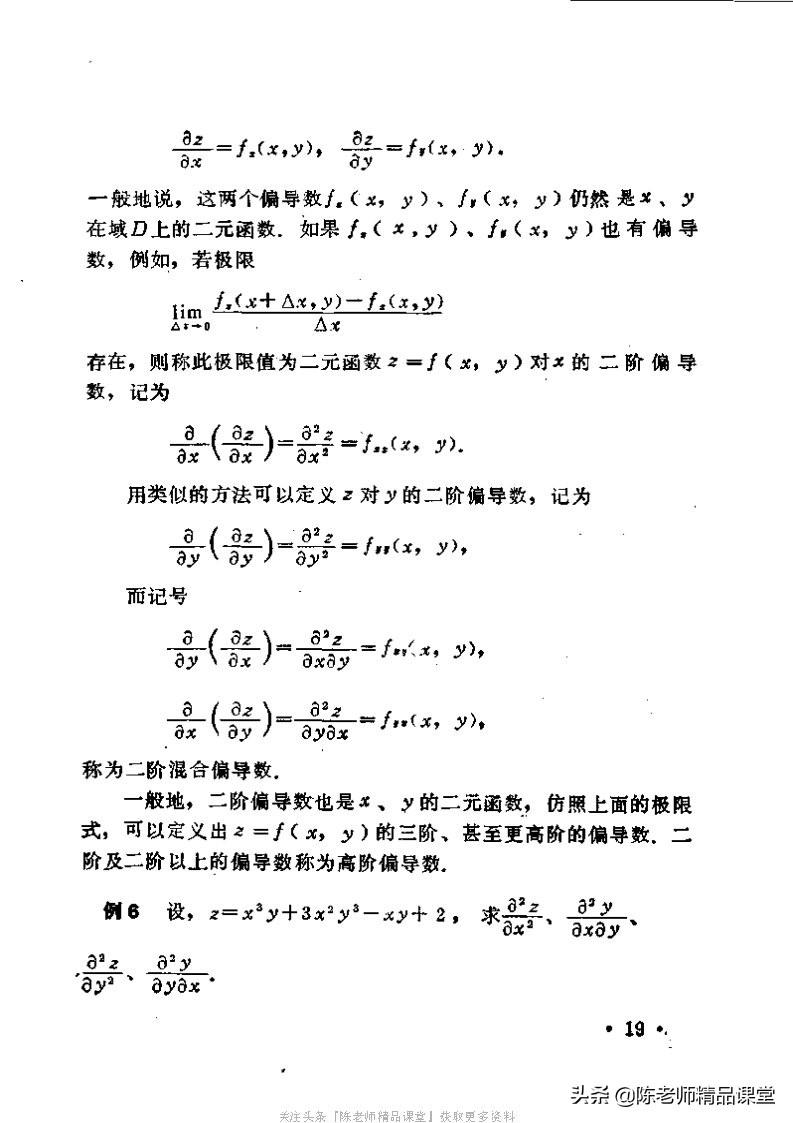 ∂z/∂x = fₓ(x,y), ∂z/∂y = f_y(x, y).
一般地说，这两个偏导数fₓ(x, y)、f_y(x, y)仍然是x、y
在域D上的二元函数. 如果fₓ(x,y)、f_y(x, y)也有偏导
数，例如，若极限
lim_{Δx→0} [fₓ(x+Δx,y)−fₓ(x,y)]/Δx
存在，则称此极限值为二元函数z=f(x, y)对x的二阶偏导
数，记为
∂/∂x(∂z/∂x)=∂²z/∂x²=fₓₓ(x, y).
用类似的方法可以定义z对y的二阶偏导数，记为
∂/∂y(∂z/∂y)=∂²z/∂y²=f_yy(x, y),
而记号
∂/∂y(∂z/∂x)=∂²z/∂x∂y=f_xy(x, y),
∂/∂x(∂z/∂y)=∂²z/∂y∂x=f_yx(x, y),
称为二阶混合偏导数.
一般地，二阶偏导数也是x、y的二元函数，仿照上面的极限
式，可以定义出z=f(x, y)的三阶、甚至更高阶的偏导数. 二
阶及二阶以上的偏导数称为高阶偏导数.
例6 设，z=x³y+3x²y³−xy+2，求∂²z/∂x²、∂²y/∂x∂y、
∂²z/∂y²、∂²y/∂y∂x.
• 19 •
头条 @陈老师精品课堂
关注头条「陈老师精品课堂」获取更多资料